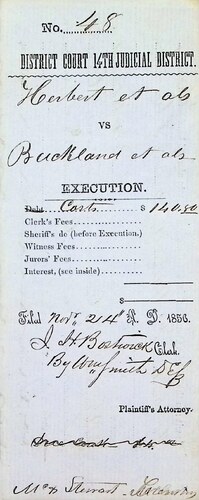 No. 48
DISTRICT COURT 14TH JUDICIAL DISTRICT.
Herbert et als
VS
Buckland et als
EXECUTION.
Debt Costs $ 140.90
Clerk's Fees
Sheriff's do (before Execution.)
Witness Fees
Jurors' Fees
Interest, (see inside)
$
Filed Novr 24th A. D. 1856.
J. H. Bostwick Clerk.
By Wm Smith
Plaintiff's Attorney.
Stewart